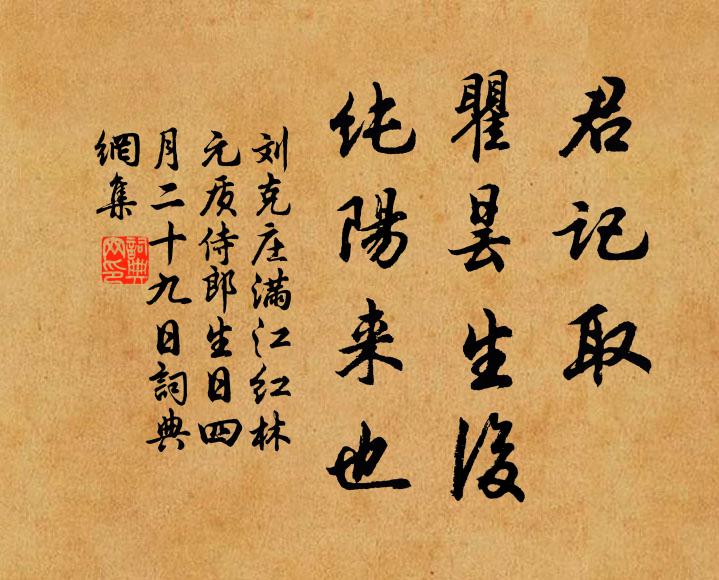 君记取
瞿昙生後
纯陽来也
刘克庄满江红林
元质侍郎生日四
月二十九日詞典
網集
詞典
网印